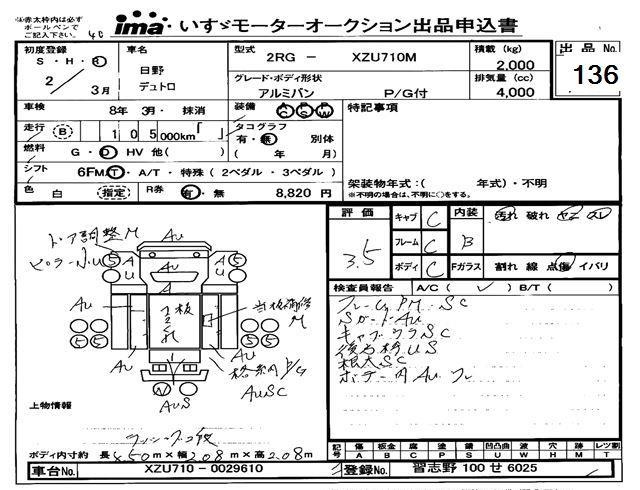 ※赤太枠内は必ず
ボールペンで
ご記入下さい。
ima いすゞモーターオークション出品申込書
初度登録 S・H・R 2 / 3月
車名 日野 デュトロ
型式 2RG － XZU710M
積載 (kg) 2,000
出品 No.
136
グレード・ボディ形状 アルミバン P/G付
排気量 (cc) 4,000
車検 8年 3月・ 抹消
装備 AC PS PW
特記事項
走行 (B) 105 000km「 」
タコグラフ 有・無 別体 ( 年 月)
燃料 G・D HV 他( )
シフト 6FM/T・A/T・特殊 (2ペダル・3ペダル)
色 白 (指定) R券 有・無 8,820 円
架装物年式:( 年式)・不明
※不明の場合は、不明に○をする。
評価 3.5
キャブ C
内装 B
汚れ 破れ
フレーム C
ボディ C
Fガラス 割れ 線 点傷 イバリ
検査員報告 A/C( ✓ ) B/T( )
フレームPM・SC
SガードAU
キャブウラSC
後方枠US
根太SC
ドア調整M
ピラー小U
AU
A
U
5
W
M
P/G
AUSC
AUS
上物情報
ボディ内寸約 長4.50m×幅2.08m×高2.08m
記号 傷 A 板金 B 腐 C 塗 P 錆 S 凹凸曲 U 波 W 穴 H 跡 M レツ割 T
車台No. XZU710－0029610
登録No. 習志野 100 せ 6025